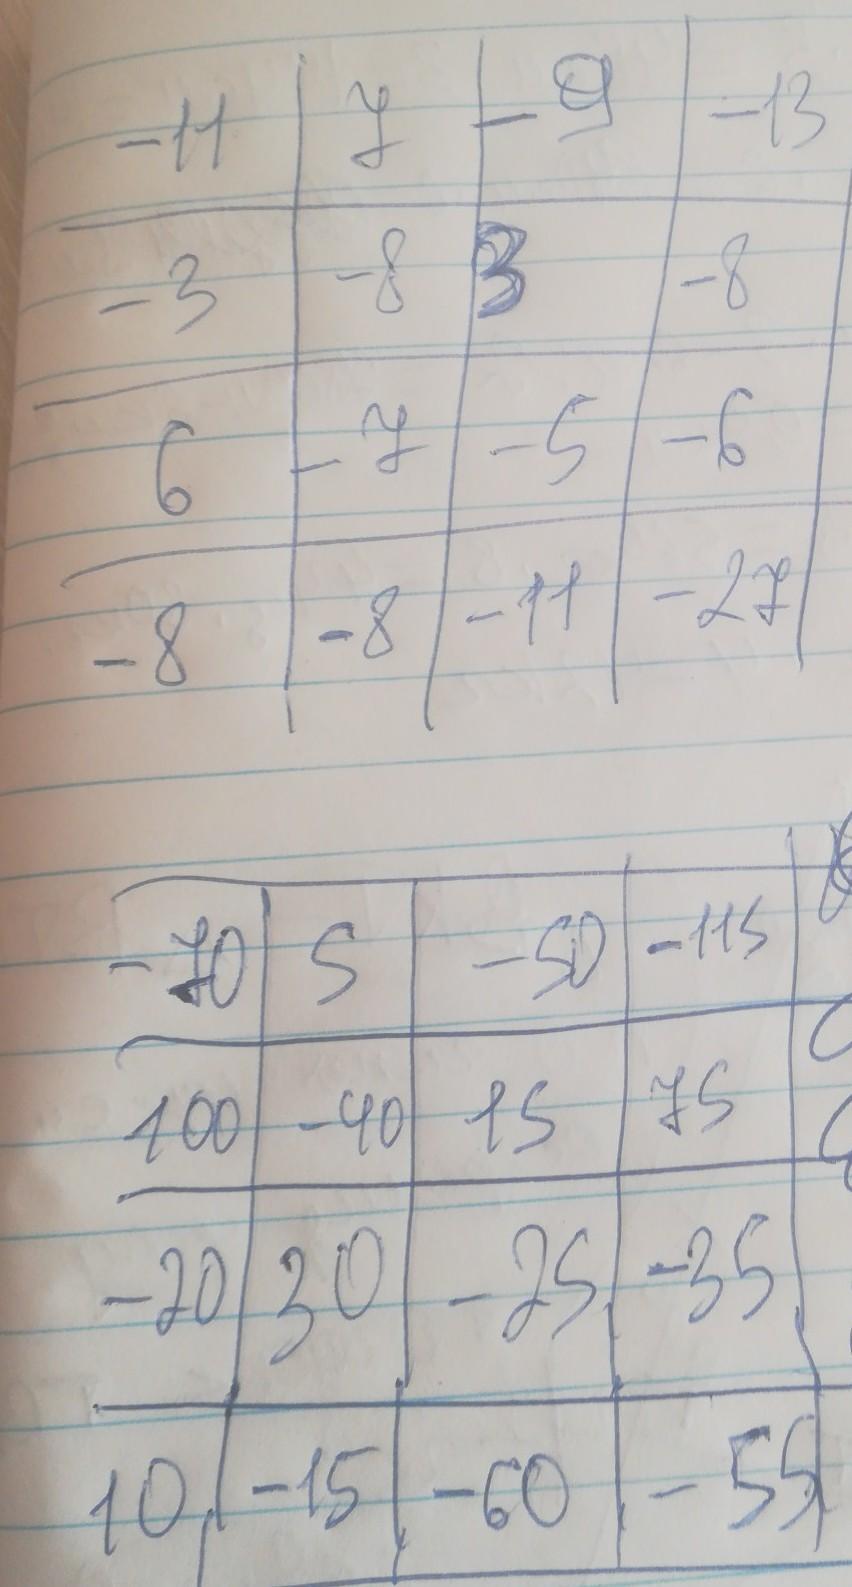 -11 7 -9 -13
-3 -8 3 -8
6 -7 -5 -6
-8 -8 -11 -27
-70 5 -50 -115
100 -40 15 75
-20 30 -25 -35
10 -15 -60 -55